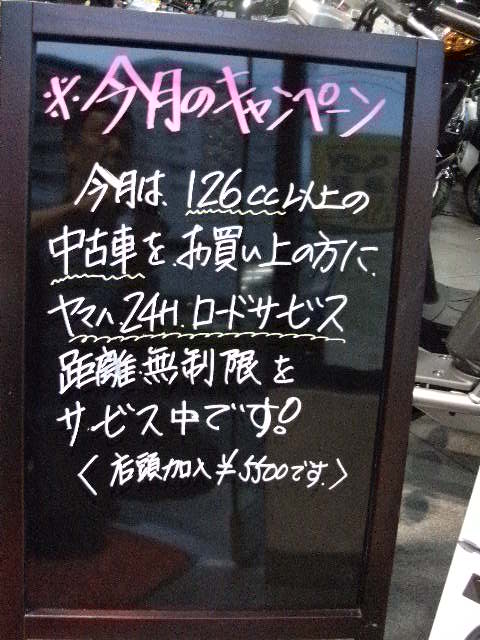 ※.今月のキャンペーン
今月は、126cc以上の
中古車を、お買い上の方に、
ヤマハ24H.ロードサービス
距離無制限を
サービス中です!
〈店頭加入¥5500です.〉